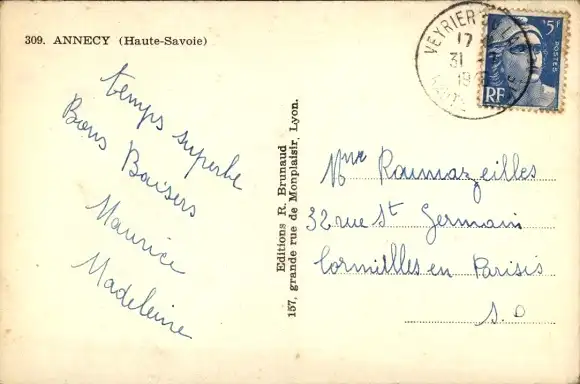 309. ANNECY (Haute-Savoie)
temps superbe
Bons Baisers
Maurice
Madeleine
Editions R. Brunaud
157, grande rue de Monplaisir, Lyon.
VEYRIER
17
31
19
5F
POSTES
RF
Mme Roumazeilles
32 rue St Germain
Cormeilles en Parisis
S.O